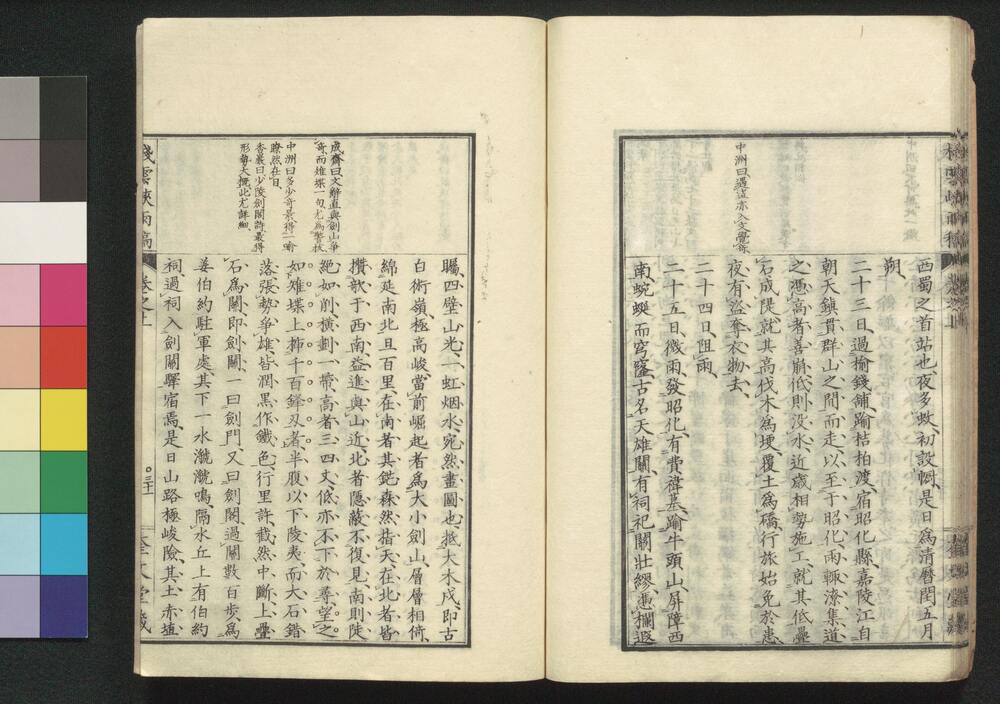 中洲曰遇盜亦入文覺餘
西蜀之首站也夜多蚊初設幮是日爲清曆閏五月
朔
二十三日過榆錢鋪踰桔柏渡宿昭化縣嘉陵江自
朝天鎮貫群山之間而走以至于昭化雨輙潦集道
之憑高者善崩低則没水近歲相勢施工就其低壘
石成陡就其高伐木爲埂覆土爲橋行旅始免於患
夜有盜奪衣物去
二十四日阻雨
二十五日微雨發昭化有費禕墓踰牛頭山屏障西
南蜿蜒而穹窿古名天雄關有祠祀關壯繆憑欄遐
成齋曰文辭直與劍山爭
奇而雉堞一句尤爲警抜
中洲曰多少奇最得一喻
瞭然在目
香巖曰少陵劍閣詩最得
形勢大槪此尤詳細
矚四壁山光一虹烟水宛然畫圖也抵大木戍即古
白術嶺極高峻當前崛起者爲大小劍山層層相倚
綿延南北亘百里在南者其鋩森然揩天在北者皆
攢欹于西南益進與山近北者隱蔽不復見南則陡
絕如削橫劃一帶高者三四丈低亦不下於尋望之
如雉堞上揷千百鋒刄者半腹以下陵夷而大石錯
落張勢爭雄皆潤黑作鐵色行里許截然中斷上壘
石爲關即劍關一曰劍門又曰劍閣過關數百步爲
姜伯約駐軍處其下一水瀧瀧鳴隔水丘上有伯約
祠過祠入劍關驛宿焉是日山路極峻險其土赤埴
棧雲峽雨稿
卷之上
三十